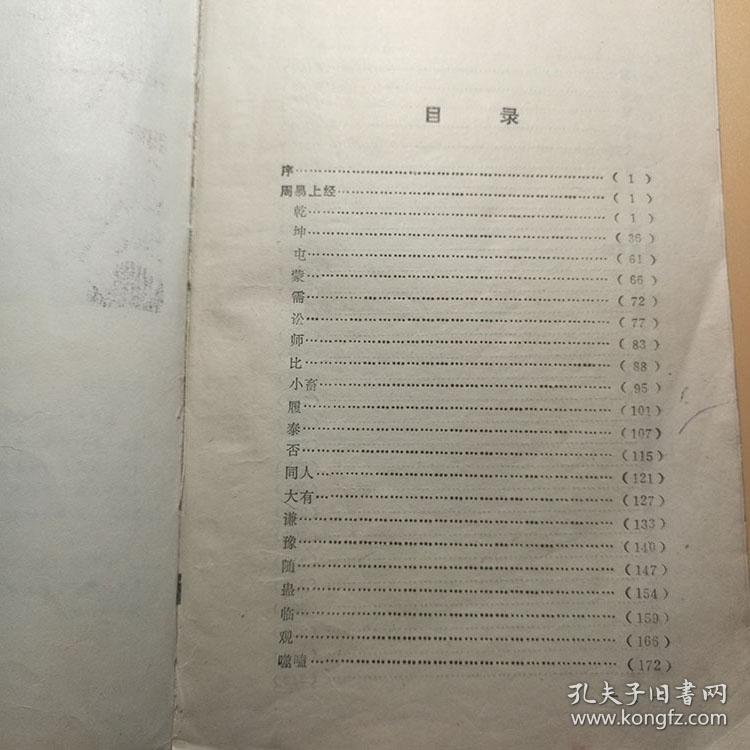 目 录
序……………………( 1 )
周易上经……………………( 1 )
乾……………………( 1 )
坤……………………( 36 )
屯……………………( 61 )
蒙……………………( 66 )
需……………………( 72 )
讼……………………( 77 )
师……………………( 83 )
比……………………( 88 )
小畜……………………( 95 )
履……………………(101)
泰……………………(107)
否……………………(115)
同人……………………(121)
大有……………………(127)
谦……………………(133)
豫……………………(140)
随……………………(147)
蛊……………………(154)
临……………………(159)
观……………………(166)
噬嗑……………………(172)
孔夫子旧书网
www.kongfz.com